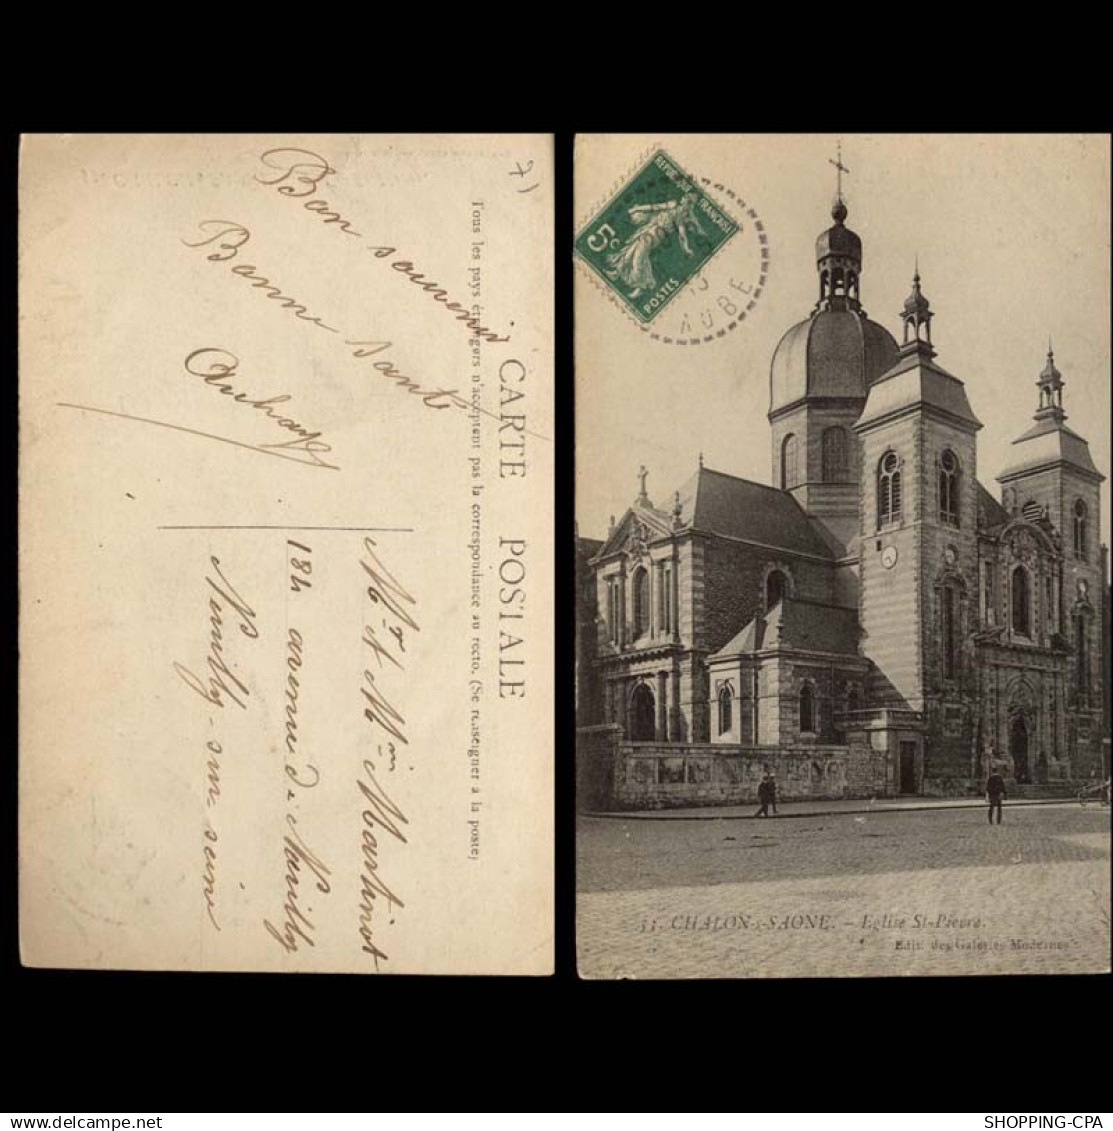 CARTE POSTALE
Tous les pays étrangers n'acceptent pas la correspondance au recto. (Se renseigner a la poste)
Bon souvenir
Bonne santé
Mr et Mme Martinot
184 avenue de Neuilly
Neuilly-sur-seine
7)
REPUBLIQUE FRANÇAISE
5c
POSTES
13
AUBE
33. CHALON-s-SAONE. - Eglise St-Pierre.
Edit. des Galeries Modernes
SHOPPING-CPA